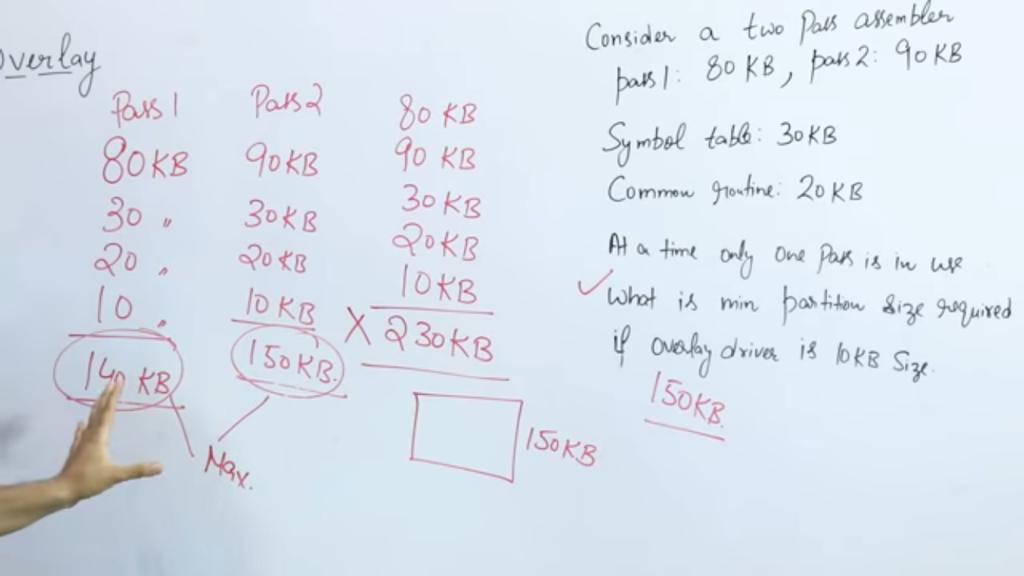 Overlay
Pass 1
80KB
30 "
20 "
10 "
140 KB
Pass 2
90KB
30KB
20KB
10KB
150KB.
Max.
80 KB
90 KB
30KB
20KB
10KB
X 230KB
150KB
Consider a two Pass assembler
pass1: 80 KB, pass 2: 90KB
Symbol table: 30KB
Common routine: 20KB
At a time only one Pass is in use
✓ What is min partition size required
if overlay driver is 10KB Size.
150KB.